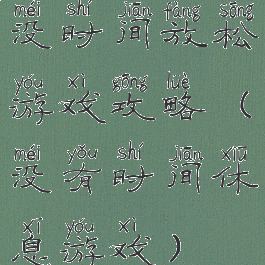 méi shí jiān fàng sōng
没时间放松
yóu xì gōng lüè
游戏攻略（
méi yǒu shí jiān xiū
没有时间休
xī yóu xì
息游戏）